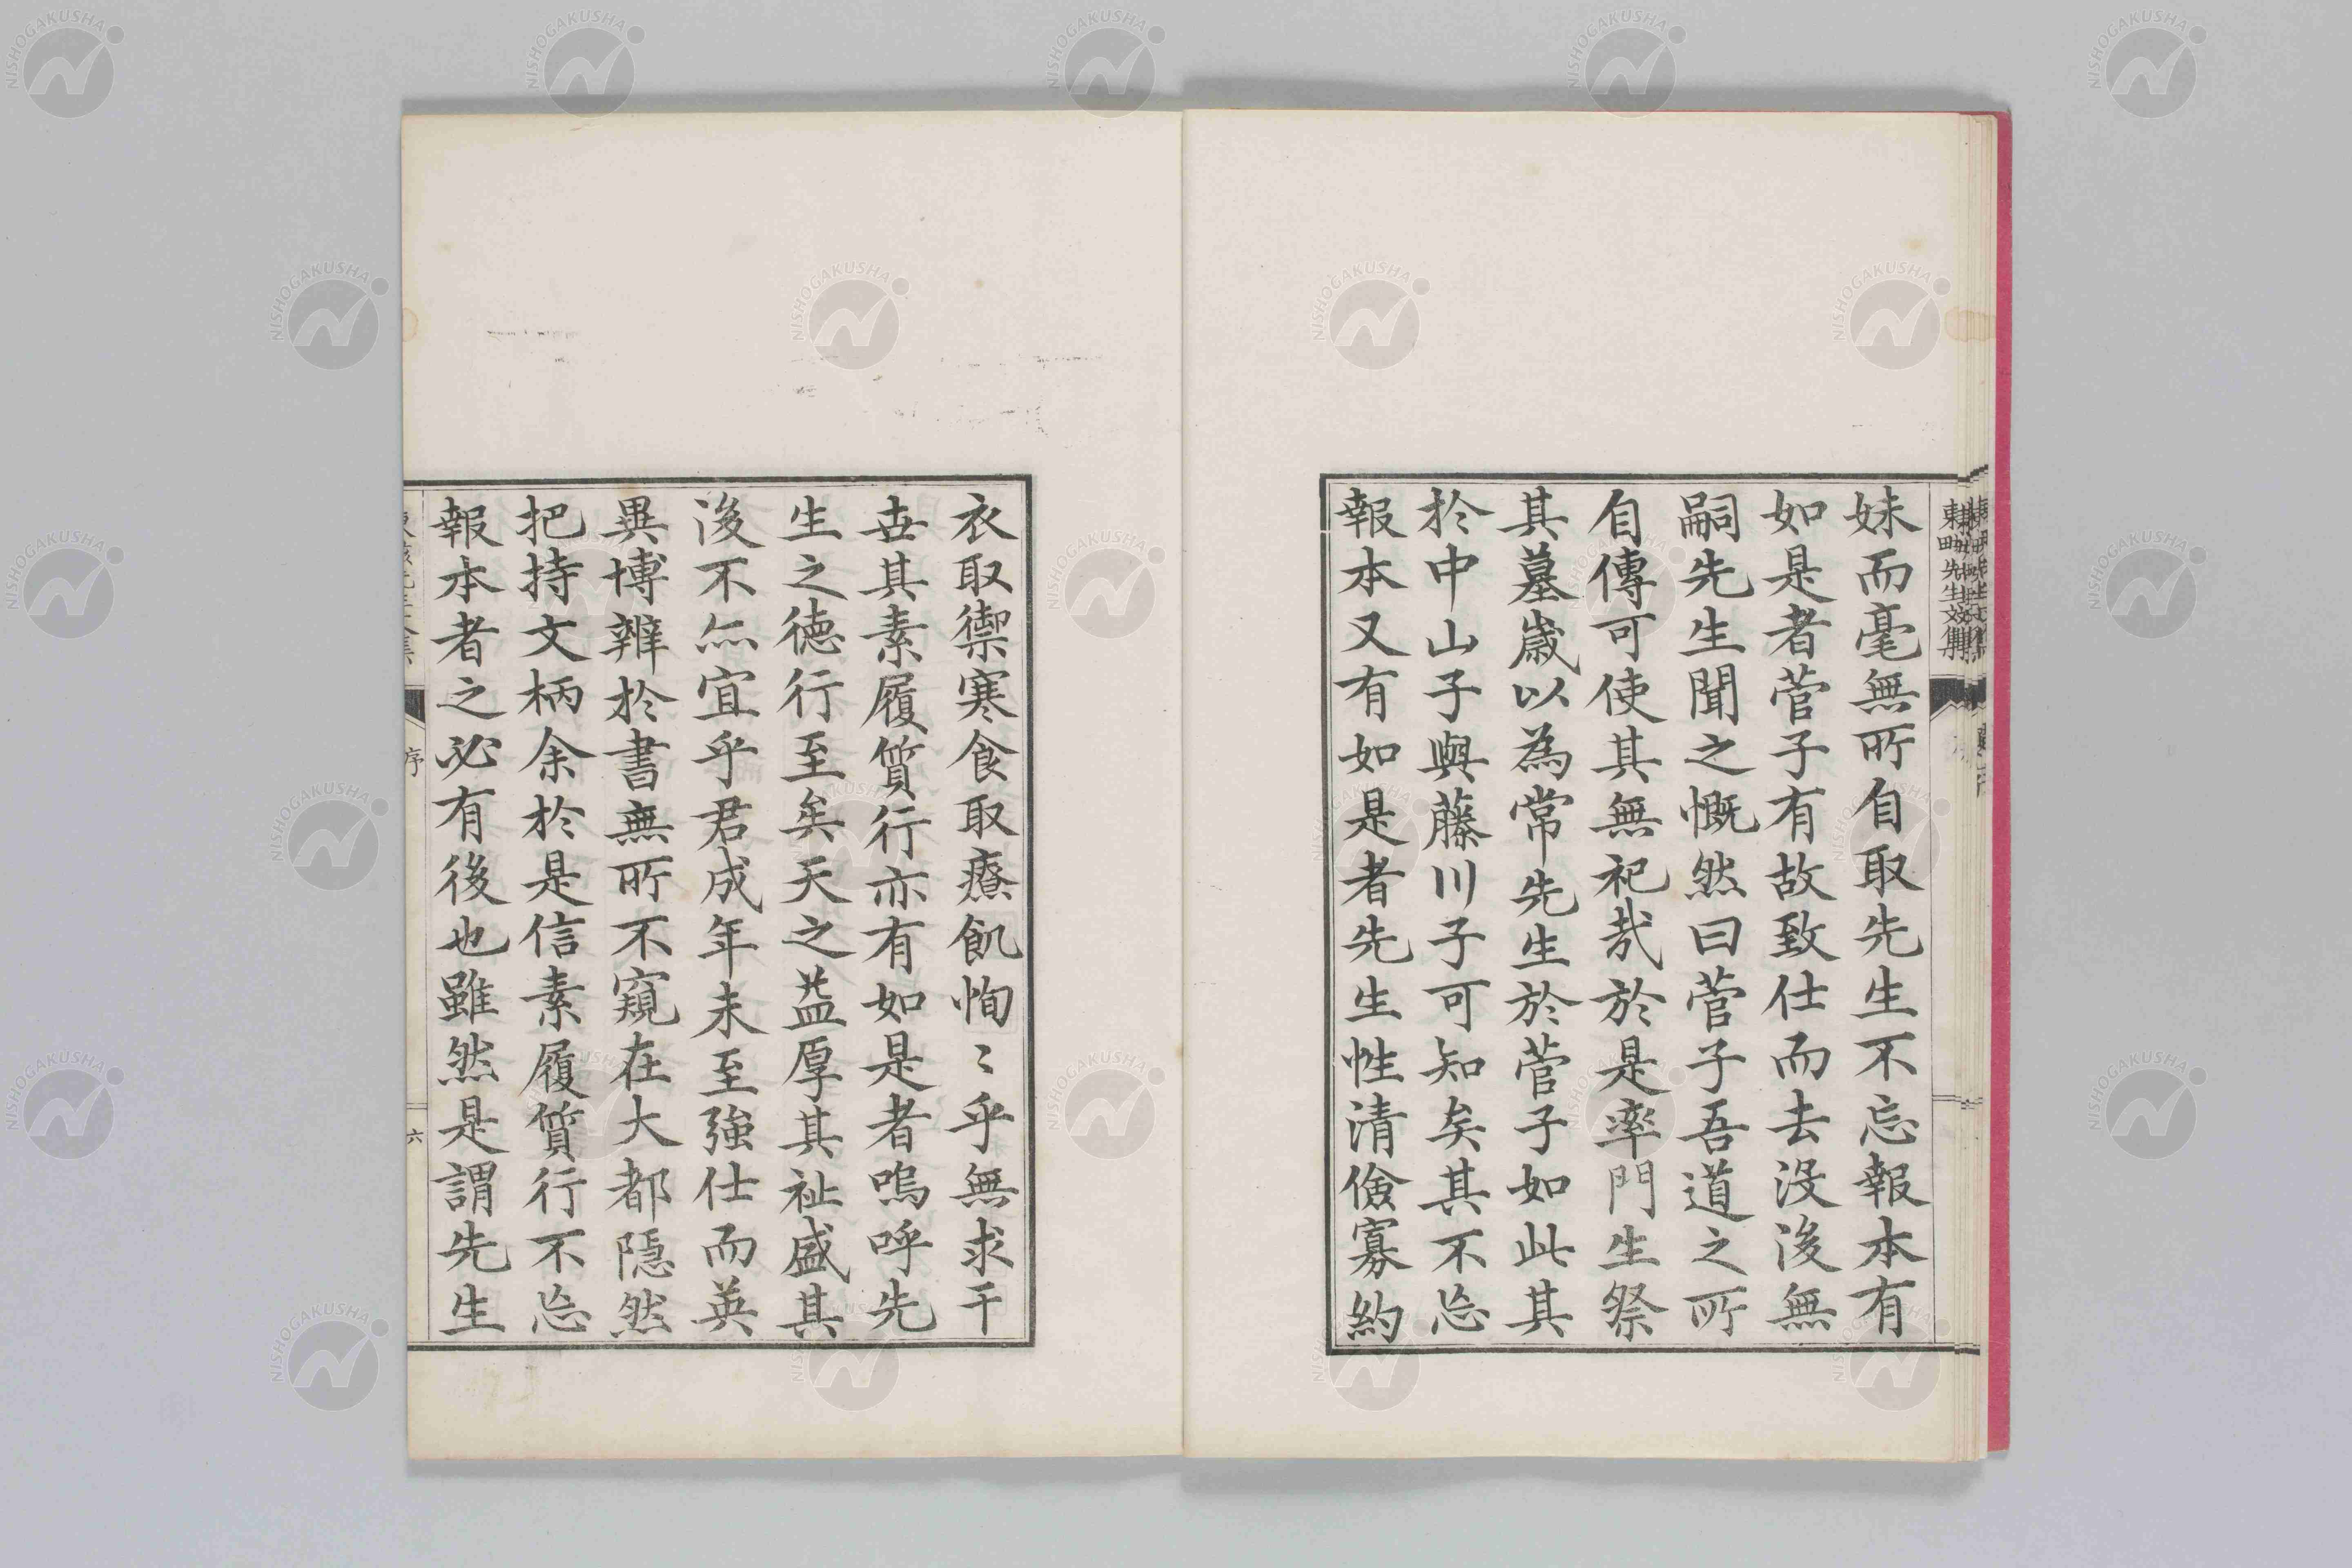 妹而毫無所自取先生不忘報本有
如是者菅子有故致仕而去沒後無
嗣先生聞之慨然曰菅子吾道之所
自傳可使其無祀哉於是率門生祭
其墓歲以為常先生於菅子如此其
於中山子與藤川子可知矣其不忘
報本又有如是者先生性清儉寡約
衣取禦寒食取療飢恂〻乎無求干
世其素履質行亦有如是者嗚呼先
生之德行至矣天之益厚其祉盛其
後不亦宜乎君成年未至強仕而英
異博辨於書無所不窺在大都隱然
把持文柄余於是信素履質行不忘
報本者之必有後也雖然是謂先生
序
六
NISHOGAKUSHA